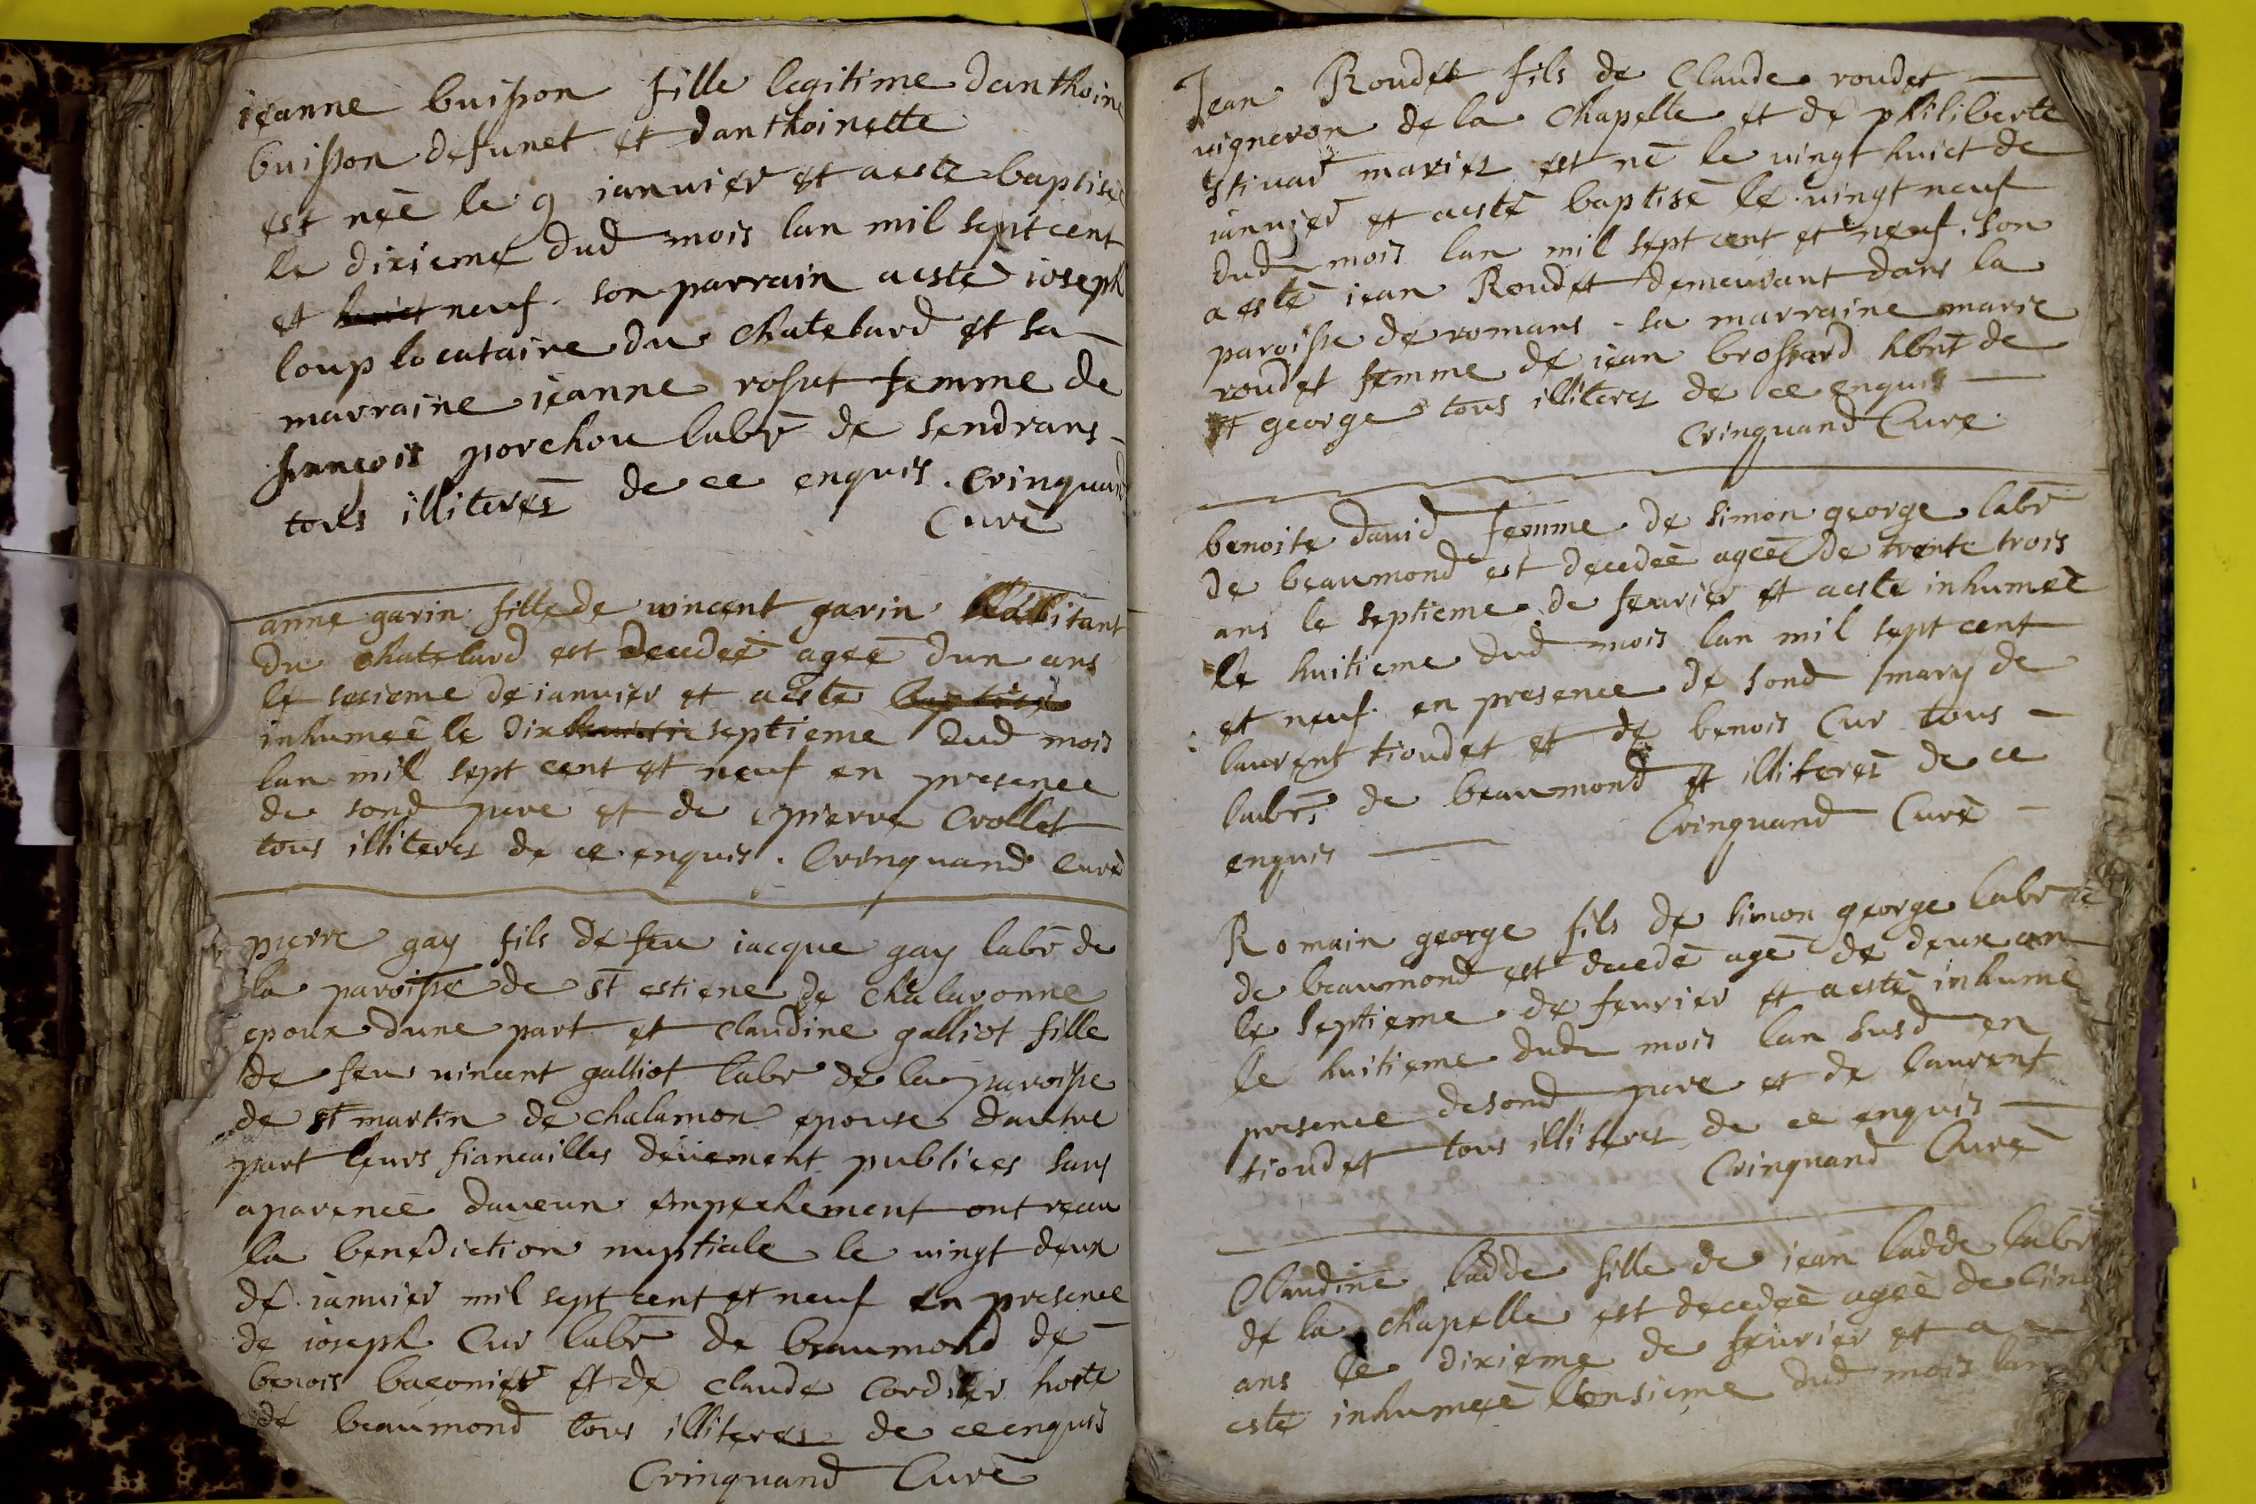 ieanne buisson fille legitime danthoine
buisson defunct et danthoinette
est neé le 9 ianvier et aesté baptiseé
le dixieme dud mois lan mil sept cent
et huict neuf. son parrain aesté ioseph
loup locataire du chatelard et sa
marraine ieanne rosut femme de
francois porchou labr de sendrans
tous illiterés de ce enquis. Crinquand
Curé
anne garin fille de vincent garin habitant
du chatelard est decedeé ageé dun ans
le sesieme de ianvier et aesté baptiseé
inhumeé le dix septieme dud mois
lan mil sept cent et neuf en presence
de sond pere et de pierre Crollet
tous illiteres de ce enquis. Crinquand Curé
pierre gay fils de feu iacque gay labr de
la paroisse de st estiene de chalaronne
epoux dune part et claudine galliot fille
de feu vincent galliot labr de la paroisse
de st martin de chalamon epouse dautre
part leurs fiancailles deüement publiees sans
aparence daucun empechement ont receu
la benediction nuptiale le vingt deux
de ianvier mil sept cent et neuf en presence
de ioseph Cur labr de beaumond de
benois baconier et de claude Cordier hoste
de beaumond tous illiteres de ce enquis
Crinquand Curé
Jean Roudet fils de Claude roudet
vigneron de la Chapelle et de philiberte
Stivad mariez est né le vingt huict de
ianvier et aesté baptisé le vingt neuf
dud mois lan mil sept cent et neuf. son
a esté iean Roudet demeurant dans la
paroisse de romans - sa marraine marie
roudet femme de iean brossard hbnt de
st george tous illiteres de ce enquis
Crinquand Curé
benoite david femme de simon george labr
de beaumond est decedeé ageé de trente trois
ans le septieme de fevrier et aesté inhumeé
le huitieme dud mois lan mil sept cent
et neuf. en presence de sond mary de
laurent tioudet et de benois Cur tous
labrs de beaumond et illiterés de ce
enquis Crinquand Curé
Romain george fils de simon george labr
de beaumond est decedé agé de deux an
le septieme de fevrier et aesté inhumé
le huitieme dud mois lan susd en
presence de sond pere et de laurent
tioudet tous illiteres de ce enquis
Crinquand Curé
Claudine ladde fille de iean ladde labr
de la chapelle est decedeé ageé de cinq
ans le dixieme de feuvrier et a
esté inhumeé lonsieme dud mois lan